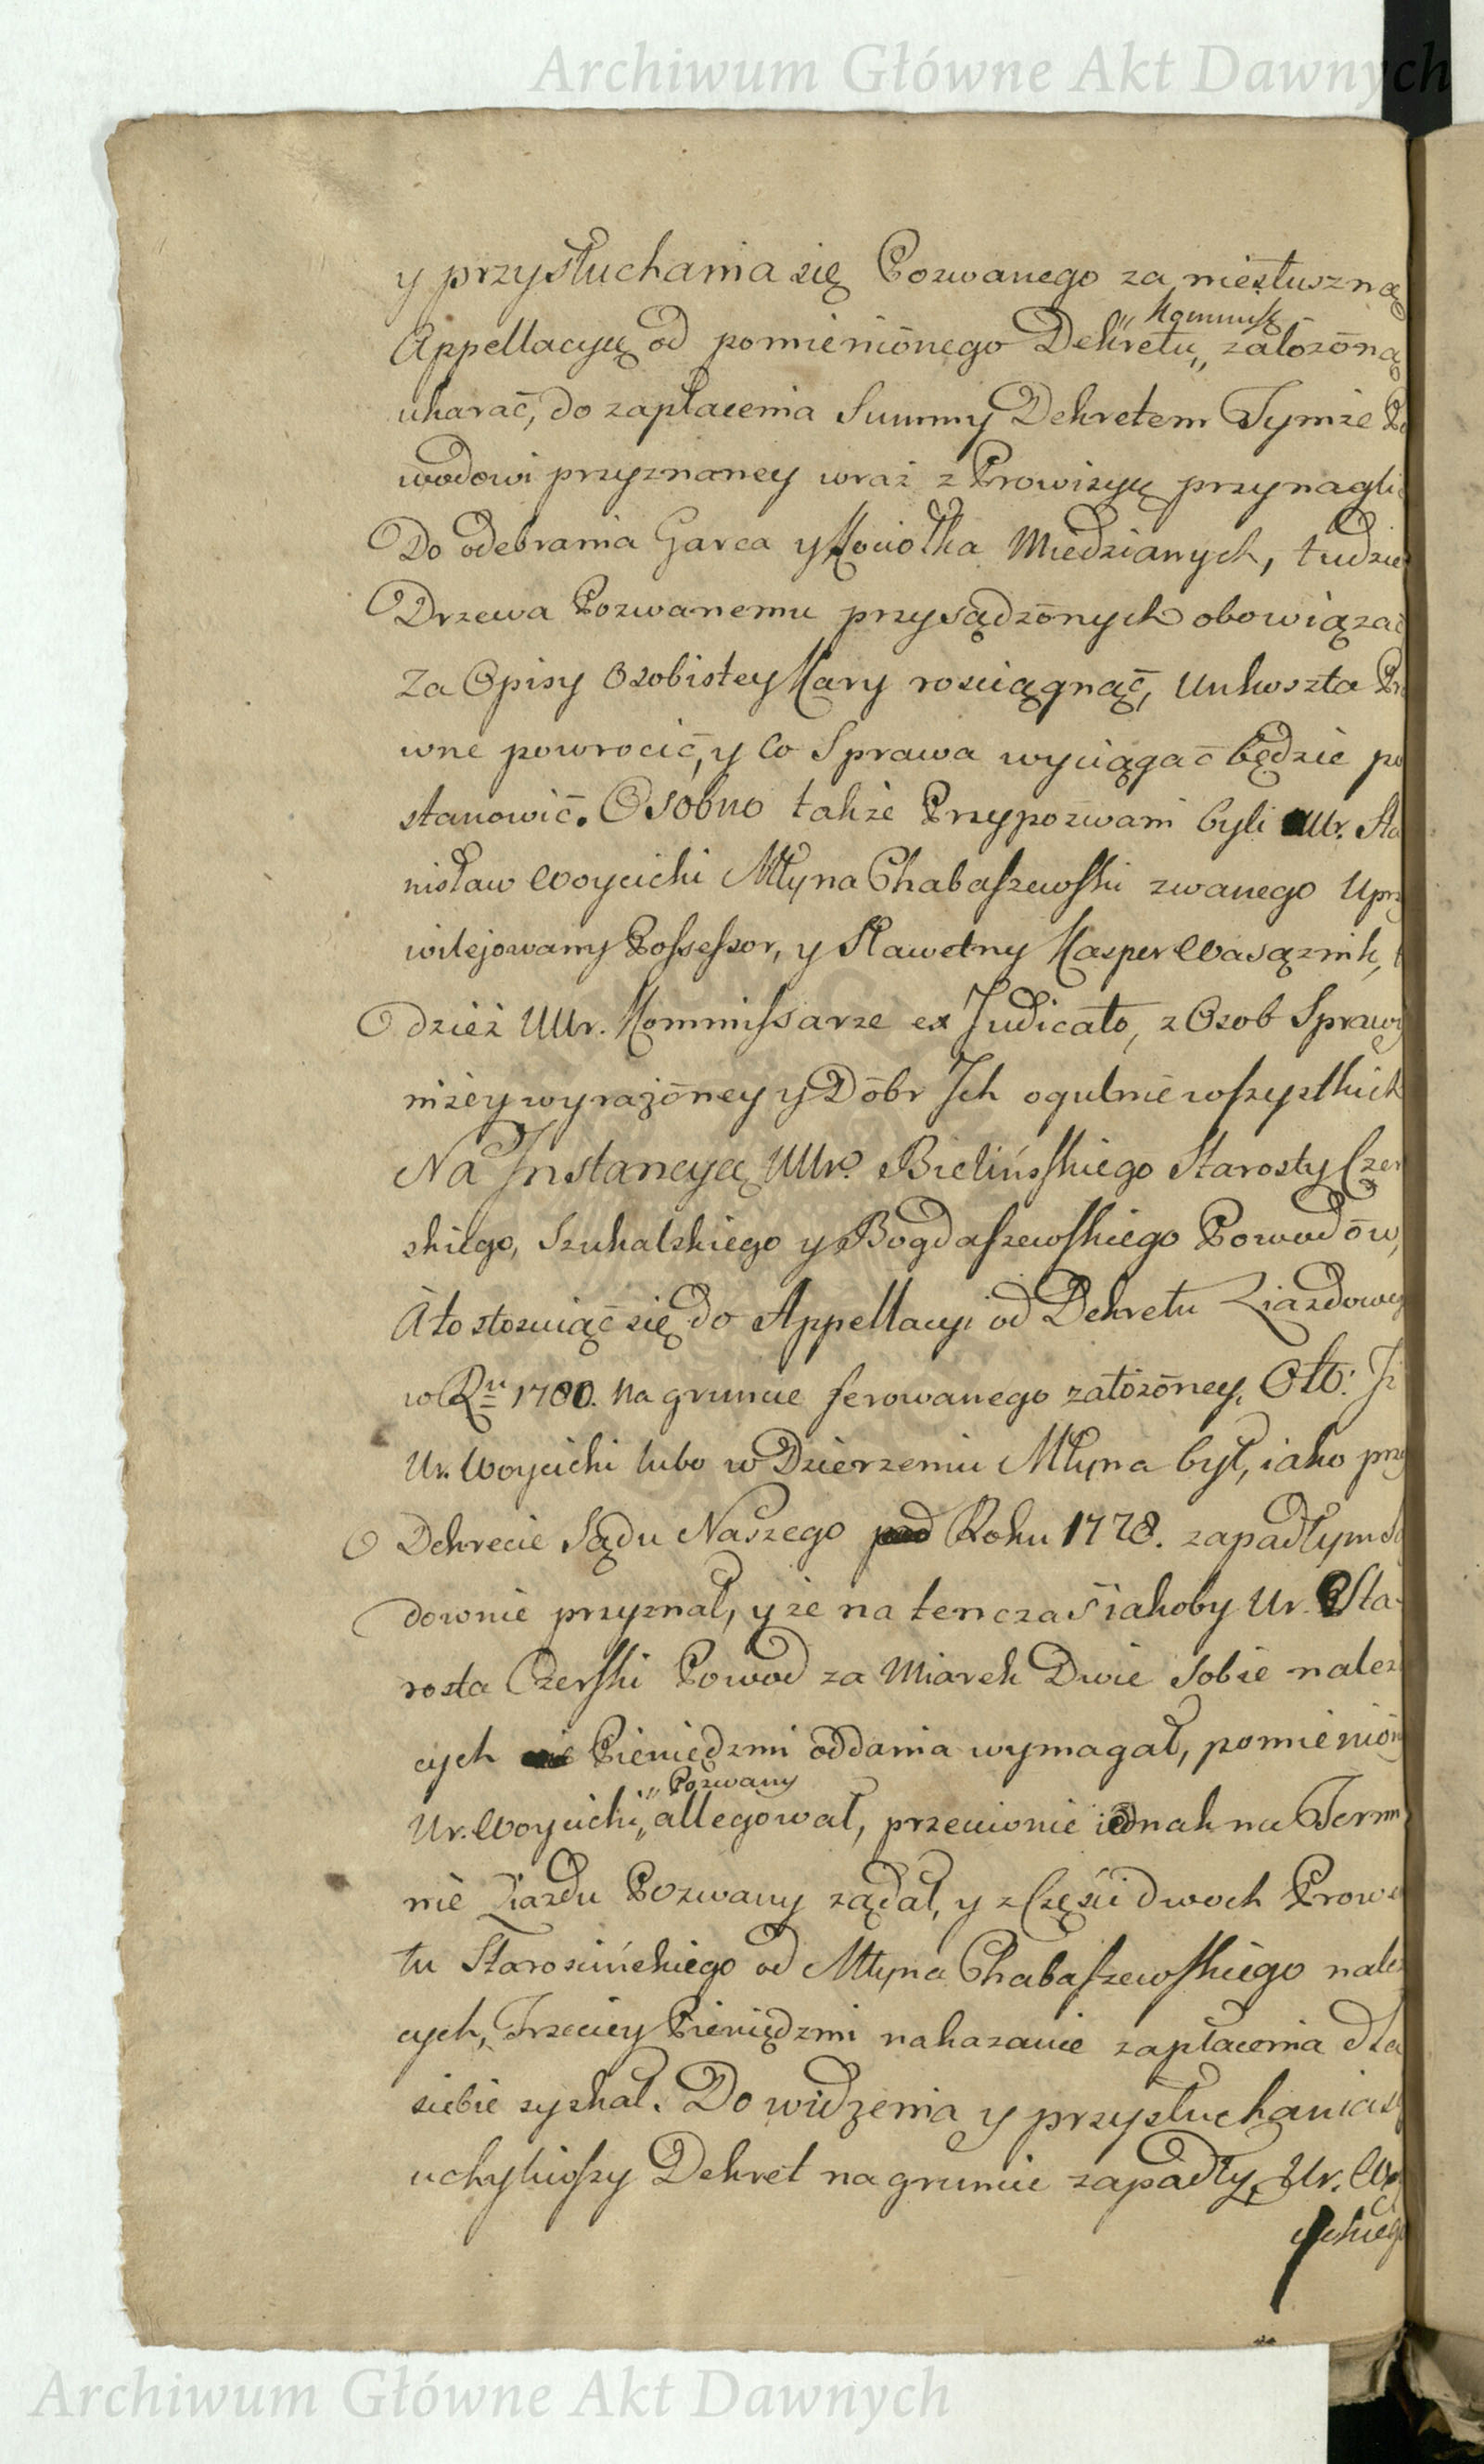 Archiwum Główne Akt Dawnych
y przysłuchania się Pozwanego za niesłuszną
Kommiss.
Appellacyą od pomienionego Dekretu założoną
ukarać, do zapłacenia Summy Dekretem Tymże Po
wodowi przyznaney wraz z Prowizyą przynagli
Do odebrania Garca y Kociołka Miedzianych, tudzie
Drzewa Pozwanemu przysądzonych obowiązać
Za Opisy Osobistey Kary rosciągnąć, Unkoszta Pra
wne powrocić, y Co Sprawa wyciągać będzie po
stanowić. Osobno także Przypozwani byli Ur. Sta
nisław Woycicki Młyna Chabaszewski zwanego Uprzy
wilejowany Possessor, y Sławetny Kasper Wasąznik, t
dzież UUr. Kommissarze ex Judicato, z Osob Sprawy
niżey wyrażoney y Dóbr Jch ogulnie wszystkich
Na Jnstancyą UUr. Bielińskiego Starosty Czer
skiego, Szuhalskiego y Bogdaszewskiego Powodów,
A to stosuiąc się do Appellacyi od Dekretu Ziazdowey
w Ru 1780. na gruncie ferowanego założoney, Oto: Jż
Ur. Woycicki lubo w Dzierzeniu Młyna był, iako przy
Dekrecie Sądu Naszego Roku 1778. zapadłym Są
downie przyznał, y że na tenczas iakoby Ur. Sta-
rosta Czerski Powod za Miarek Dwie Sobie należ
cych Pieniędzmi oddania wymagał, pomienion
Pozwany
Ur. Woycicki, allegował, przeciwnie iednak na Termi
nie Ziazdu Pozwany żądał, y z Części dwoch Prowe
tu Starościńskiego od Młyna Chabaszewskiego należ
cych, Trzeciey Pieniędzmi nakazanie zapłacenia dla
siebie zyskał. Do widzenia y przysłuchania się
uchyliwszy Dekret na gruncie zapadły, Ur. Wo
ycickiego
Archiwum Główne Akt Dawnych